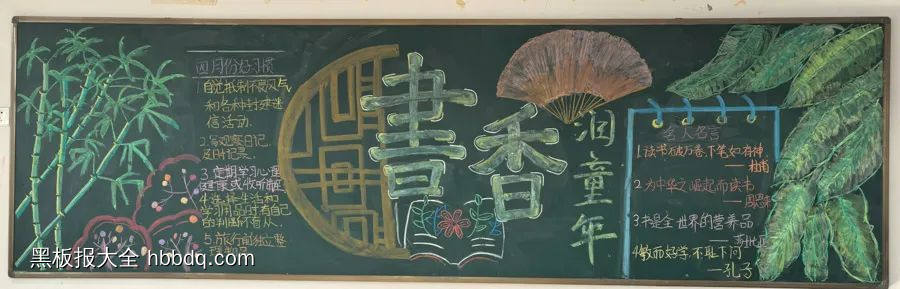 四月份好习惯
1.自觉抵制不良风气
和各种封建迷
信活动.
2.写观察日记,
及时记录.
3.定期学习心理
4.选择生活和
学习用品时有自己
的判断不盲从.
5.旅行前独立整
書香
润童年
名人名言
1.读书破万卷,下笔如有神.
——杜甫
2.为中华之崛起而读书
——周恩来
3.书是全世界的营养品
——莎士比亚
4敏而好学,不耻下问
——孔子
黑板报大全 hbbdq.com